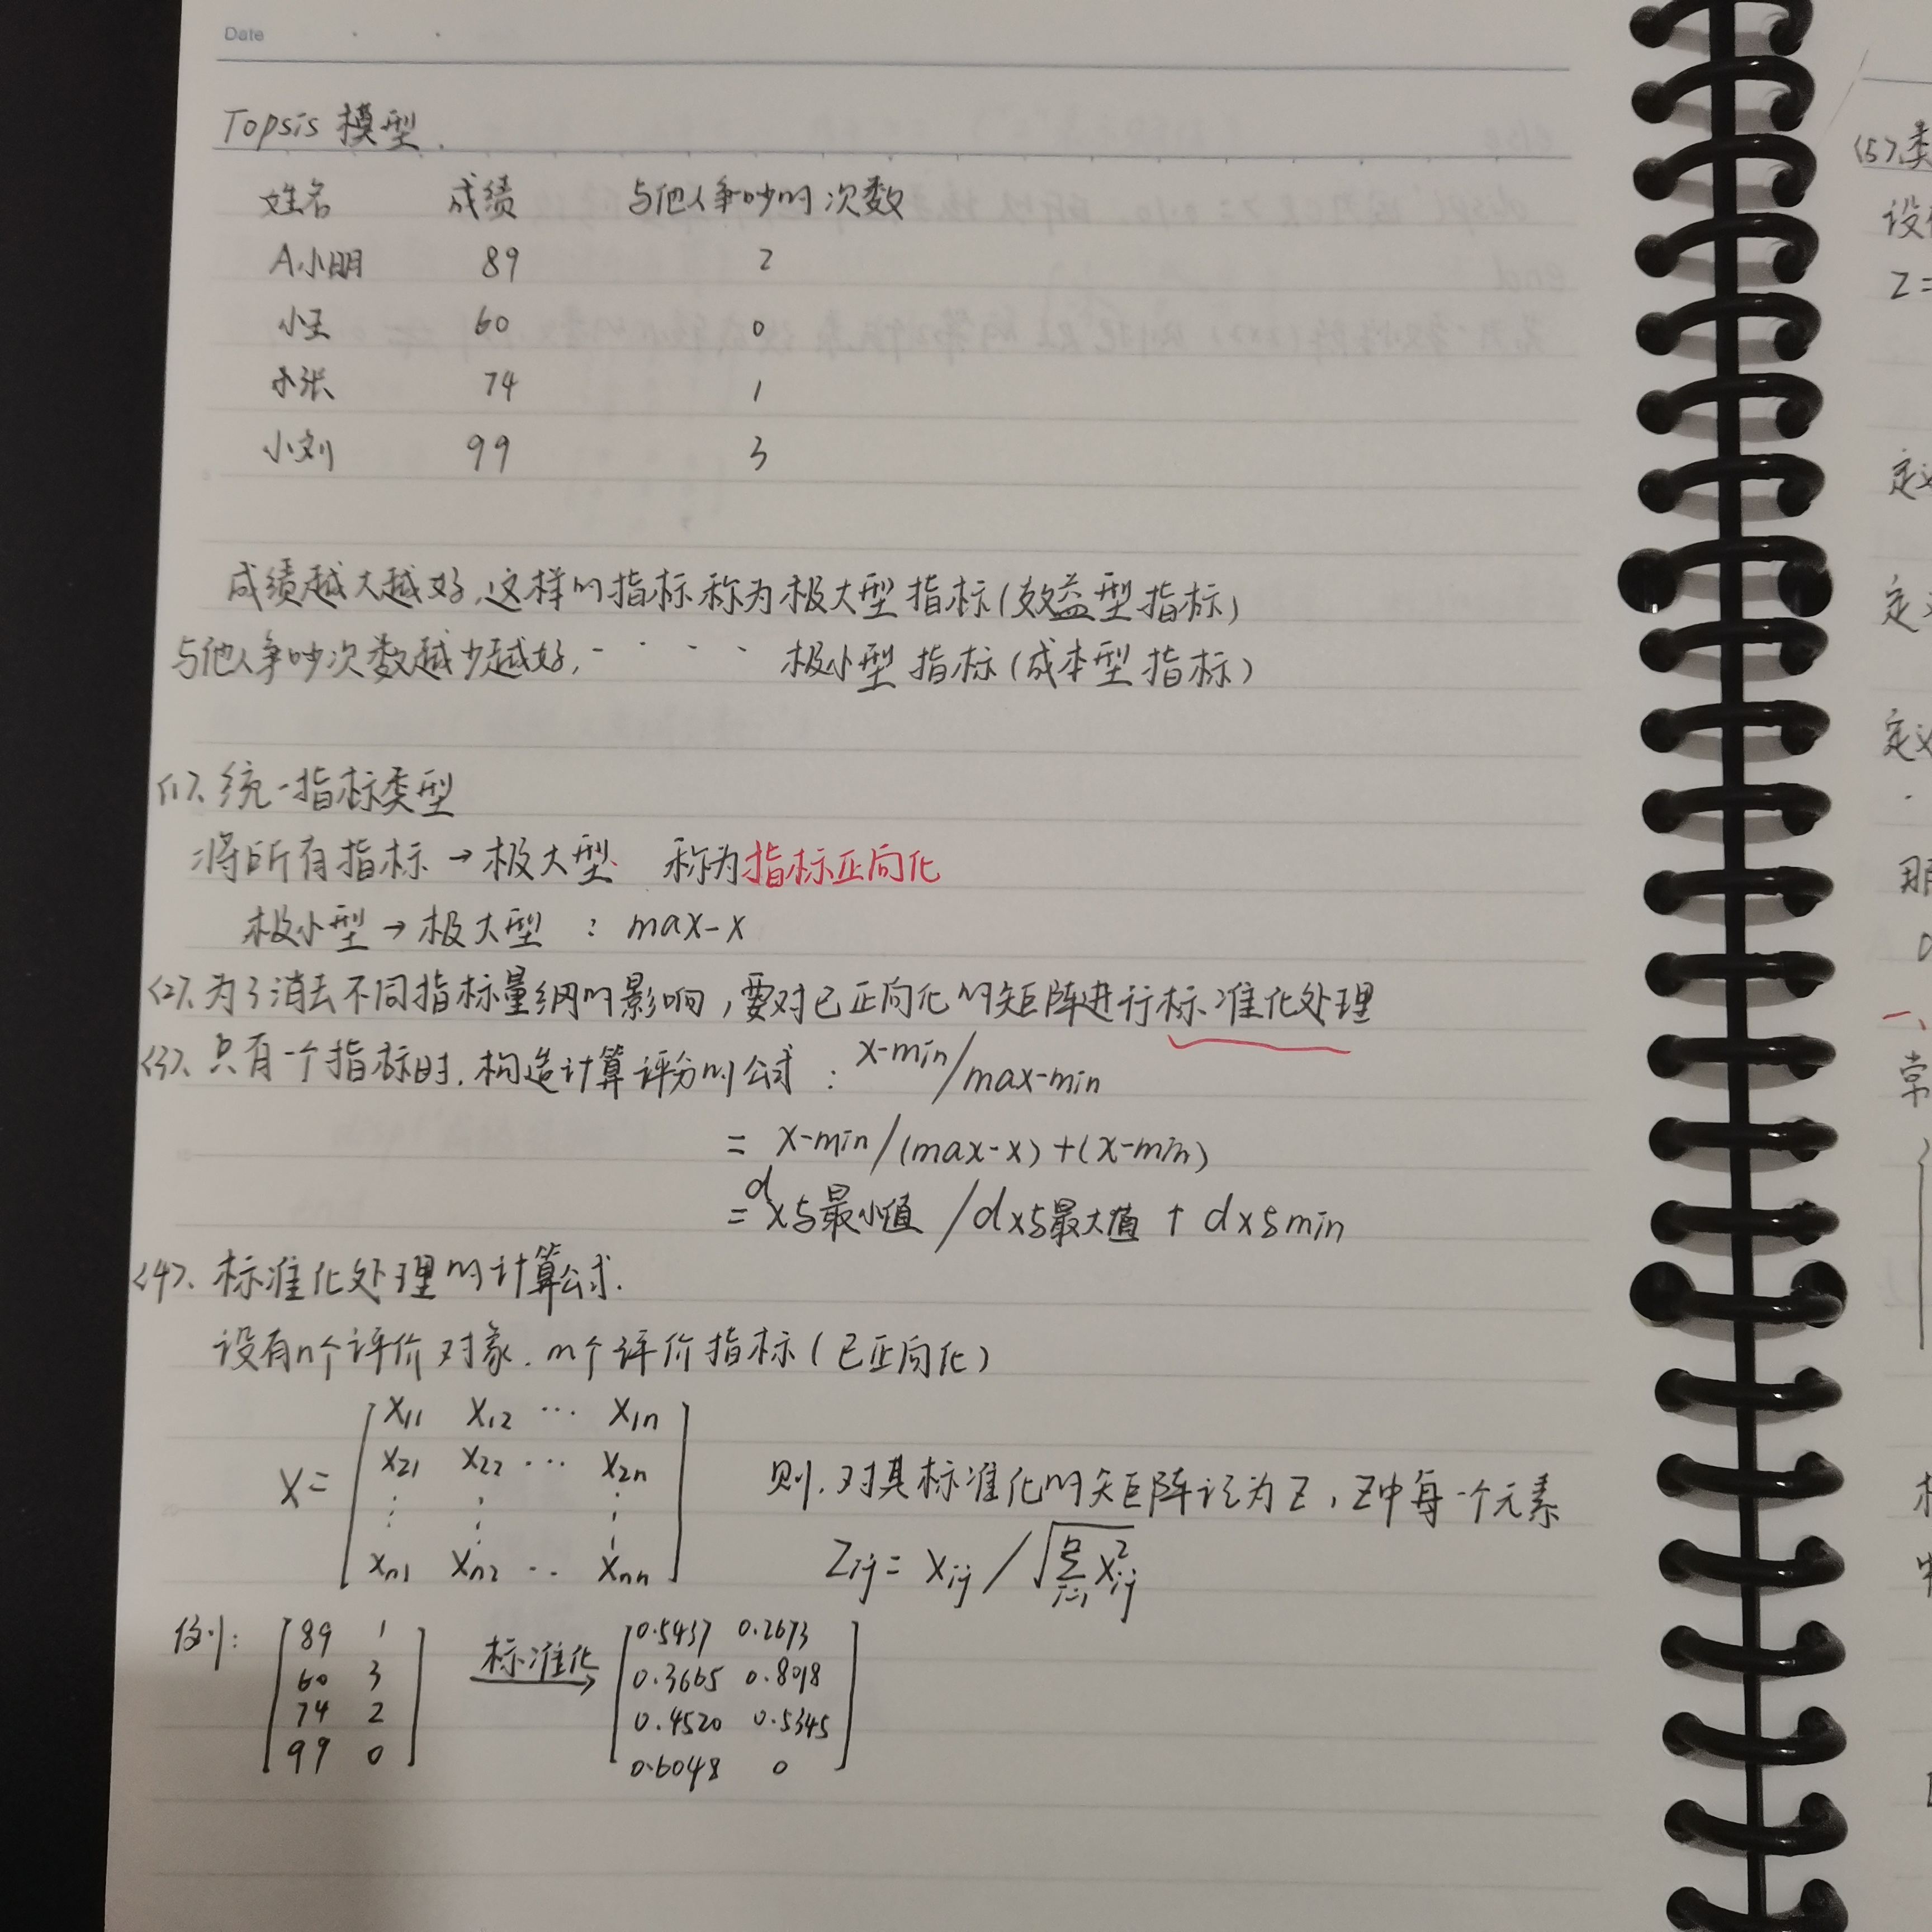 Date
Topsis 模型.
姓名 成绩 与他人争吵的次数
A小明 89 2
小王 60 0
小张 74 1
小刘 99 3
成绩越大越好,这样的指标称为极大型指标(效益型指标)
与他人争吵次数越少越好, - · · · 极小型指标(成本型指标)
<1>、统一指标类型
将所有指标→极大型. 称为指标正向化
极小型→极大型 : max-x
<2>、为了消去不同指标量纲的影响,要对已正向化的矩阵进行标准化处理
<3>、只有一个指标时,构造计算评分的公式: x-min/max-min
= x-min/(max-x)+(x-min)
= d x与最小值 / d x与最大值 + d x与min
<4>、标准化处理的计算公式.
设有n个评价对象,m个评价指标(已正向化)
X= [ X11 X12 ... X1n
X21 X22 ... X2n
⋮ ⋮ ⋮
Xn1 Xn2 .. Xnn ]
则,对其标准化的矩阵记为Z,Z中每一个元素
Zij = Xij / √ Σ i=1 n X²ij
例: [ 89 1
60 3
74 2
99 0 ]
标准化→
[ 0.5437 0.2673
0.3665 0.8018
0.4520 0.5345
0.6048 0 ]
<5>、类
设
Z=
定义
定义
定义
那
一、
常